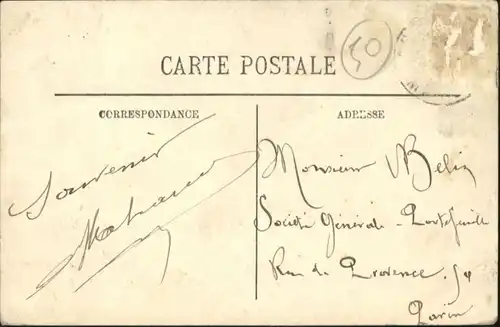 50
CARTE POSTALE
CORRESPONDANCE
ADRESSE
Souvenir
Monsieur Belin
Société Générale - Portefeuille
Rue de Provence. 50
Paris